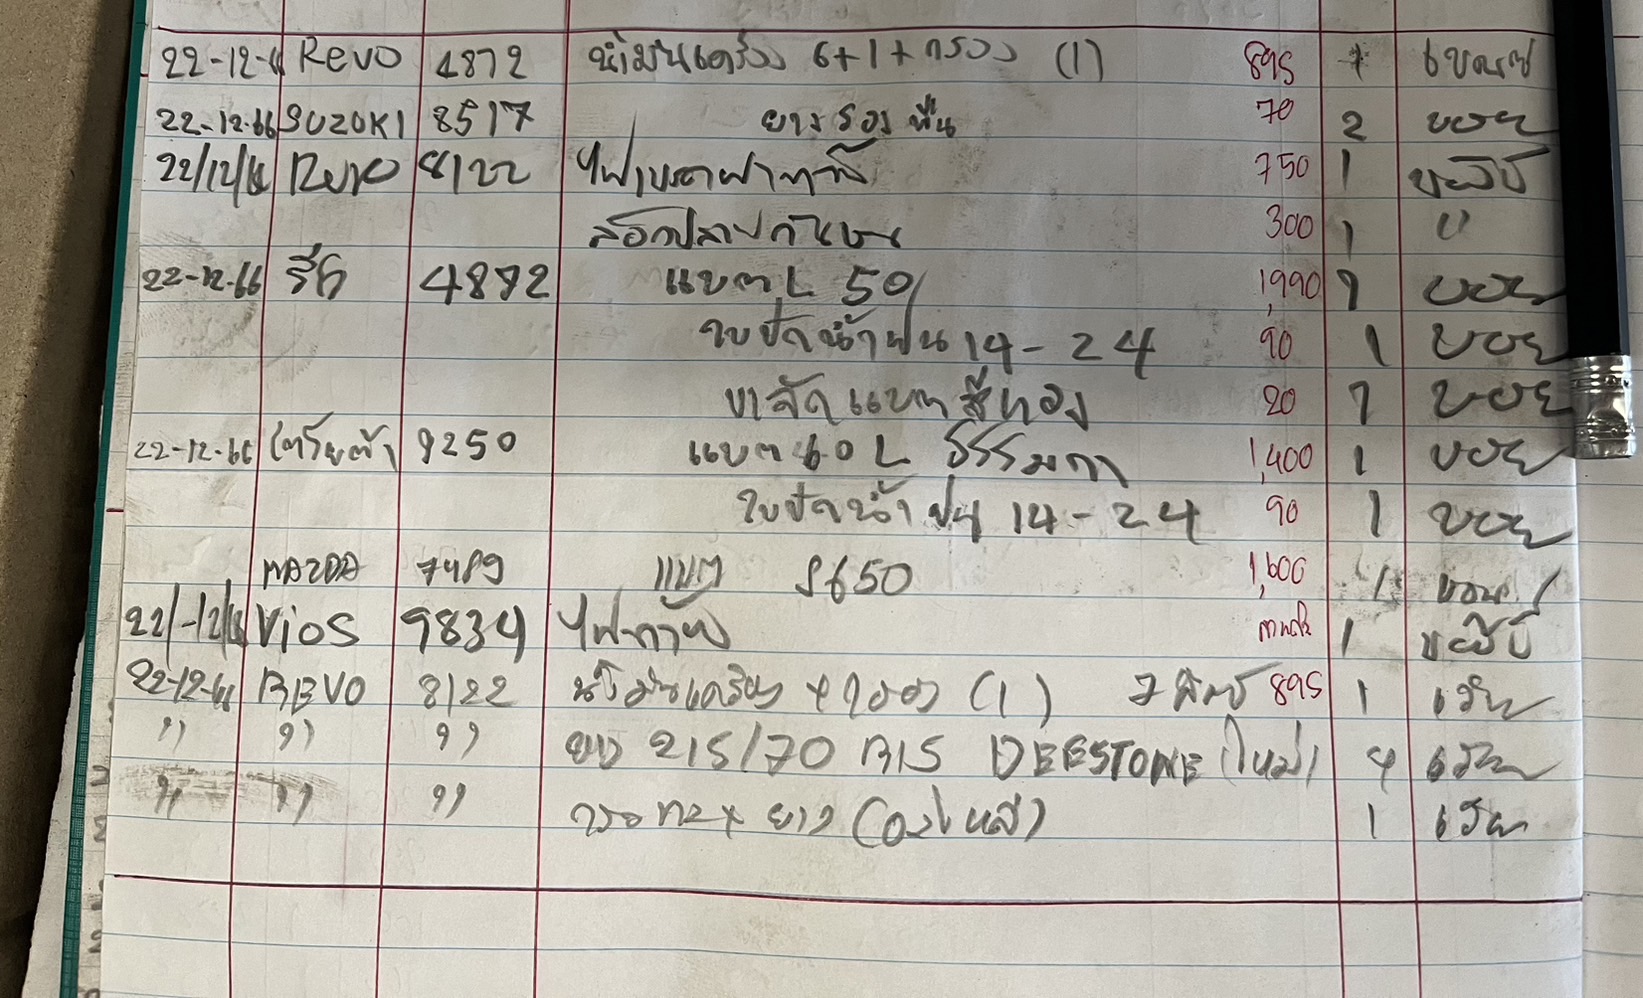 22-12-66 Revo 4872 น้ำมันเครื่อง 6+1+กรอง (1) 895
22-12-66 SUZUKI 8517 ยางรองหีน 70 2 บอย
22/12/66 Revo 8122 ไฟเบรคฝาท้าย 750 1
300 1 "
22-12-66 4872 แบต L 50 1,990 1 บอย
ใบปัดน้ำฝน 14-24 90 1 บอย
ขาลัดแบตสีทอง 20 1 บอย
22-12-66 9250 แบต 60 L ธรรมดา 1,400 1 บอย
ใบปัดน้ำฝน 14-24 90 1 บอย
MAZDA 7489 แบต S650 1,600 1
22/-12/66 Vios 9834 ไฟท้าย 1
22-12-66 REVO 8122 น้ำมันเครื่อง + กรอง (1) 7 ลิตร 895 1
" " " ยาง 215/70 R15 DEESTONE (ใหม่) 4
" " " ยาง 1